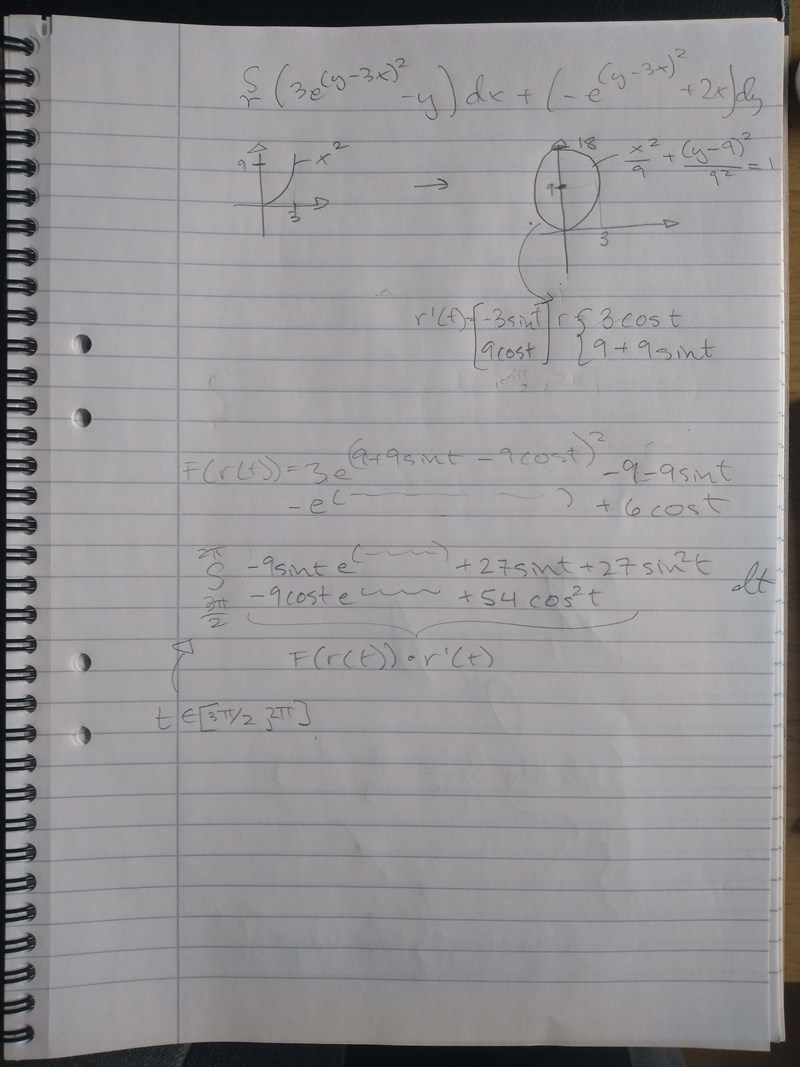 ∫γ (3e^(y-3x)² -y) dx + (-e^(y-3x)² +2x)dy
9 x² 3
→
18 9 3 x²/9 + (y-9)²/9² = 1
r'(t)=[-3sint r { 3cost
9cost] 9+9sint
F(r(t)) = 3e^(9+9sint - 9cost)² -9-9sint
-e^( ) + 6cost
∫_{3π/2}^{2π} -9sint e^( ) +27sint+27sin²t dt
-9cost e +54 cos²t
F(r(t))•r'(t)
t ∈[3π/2, 2π]